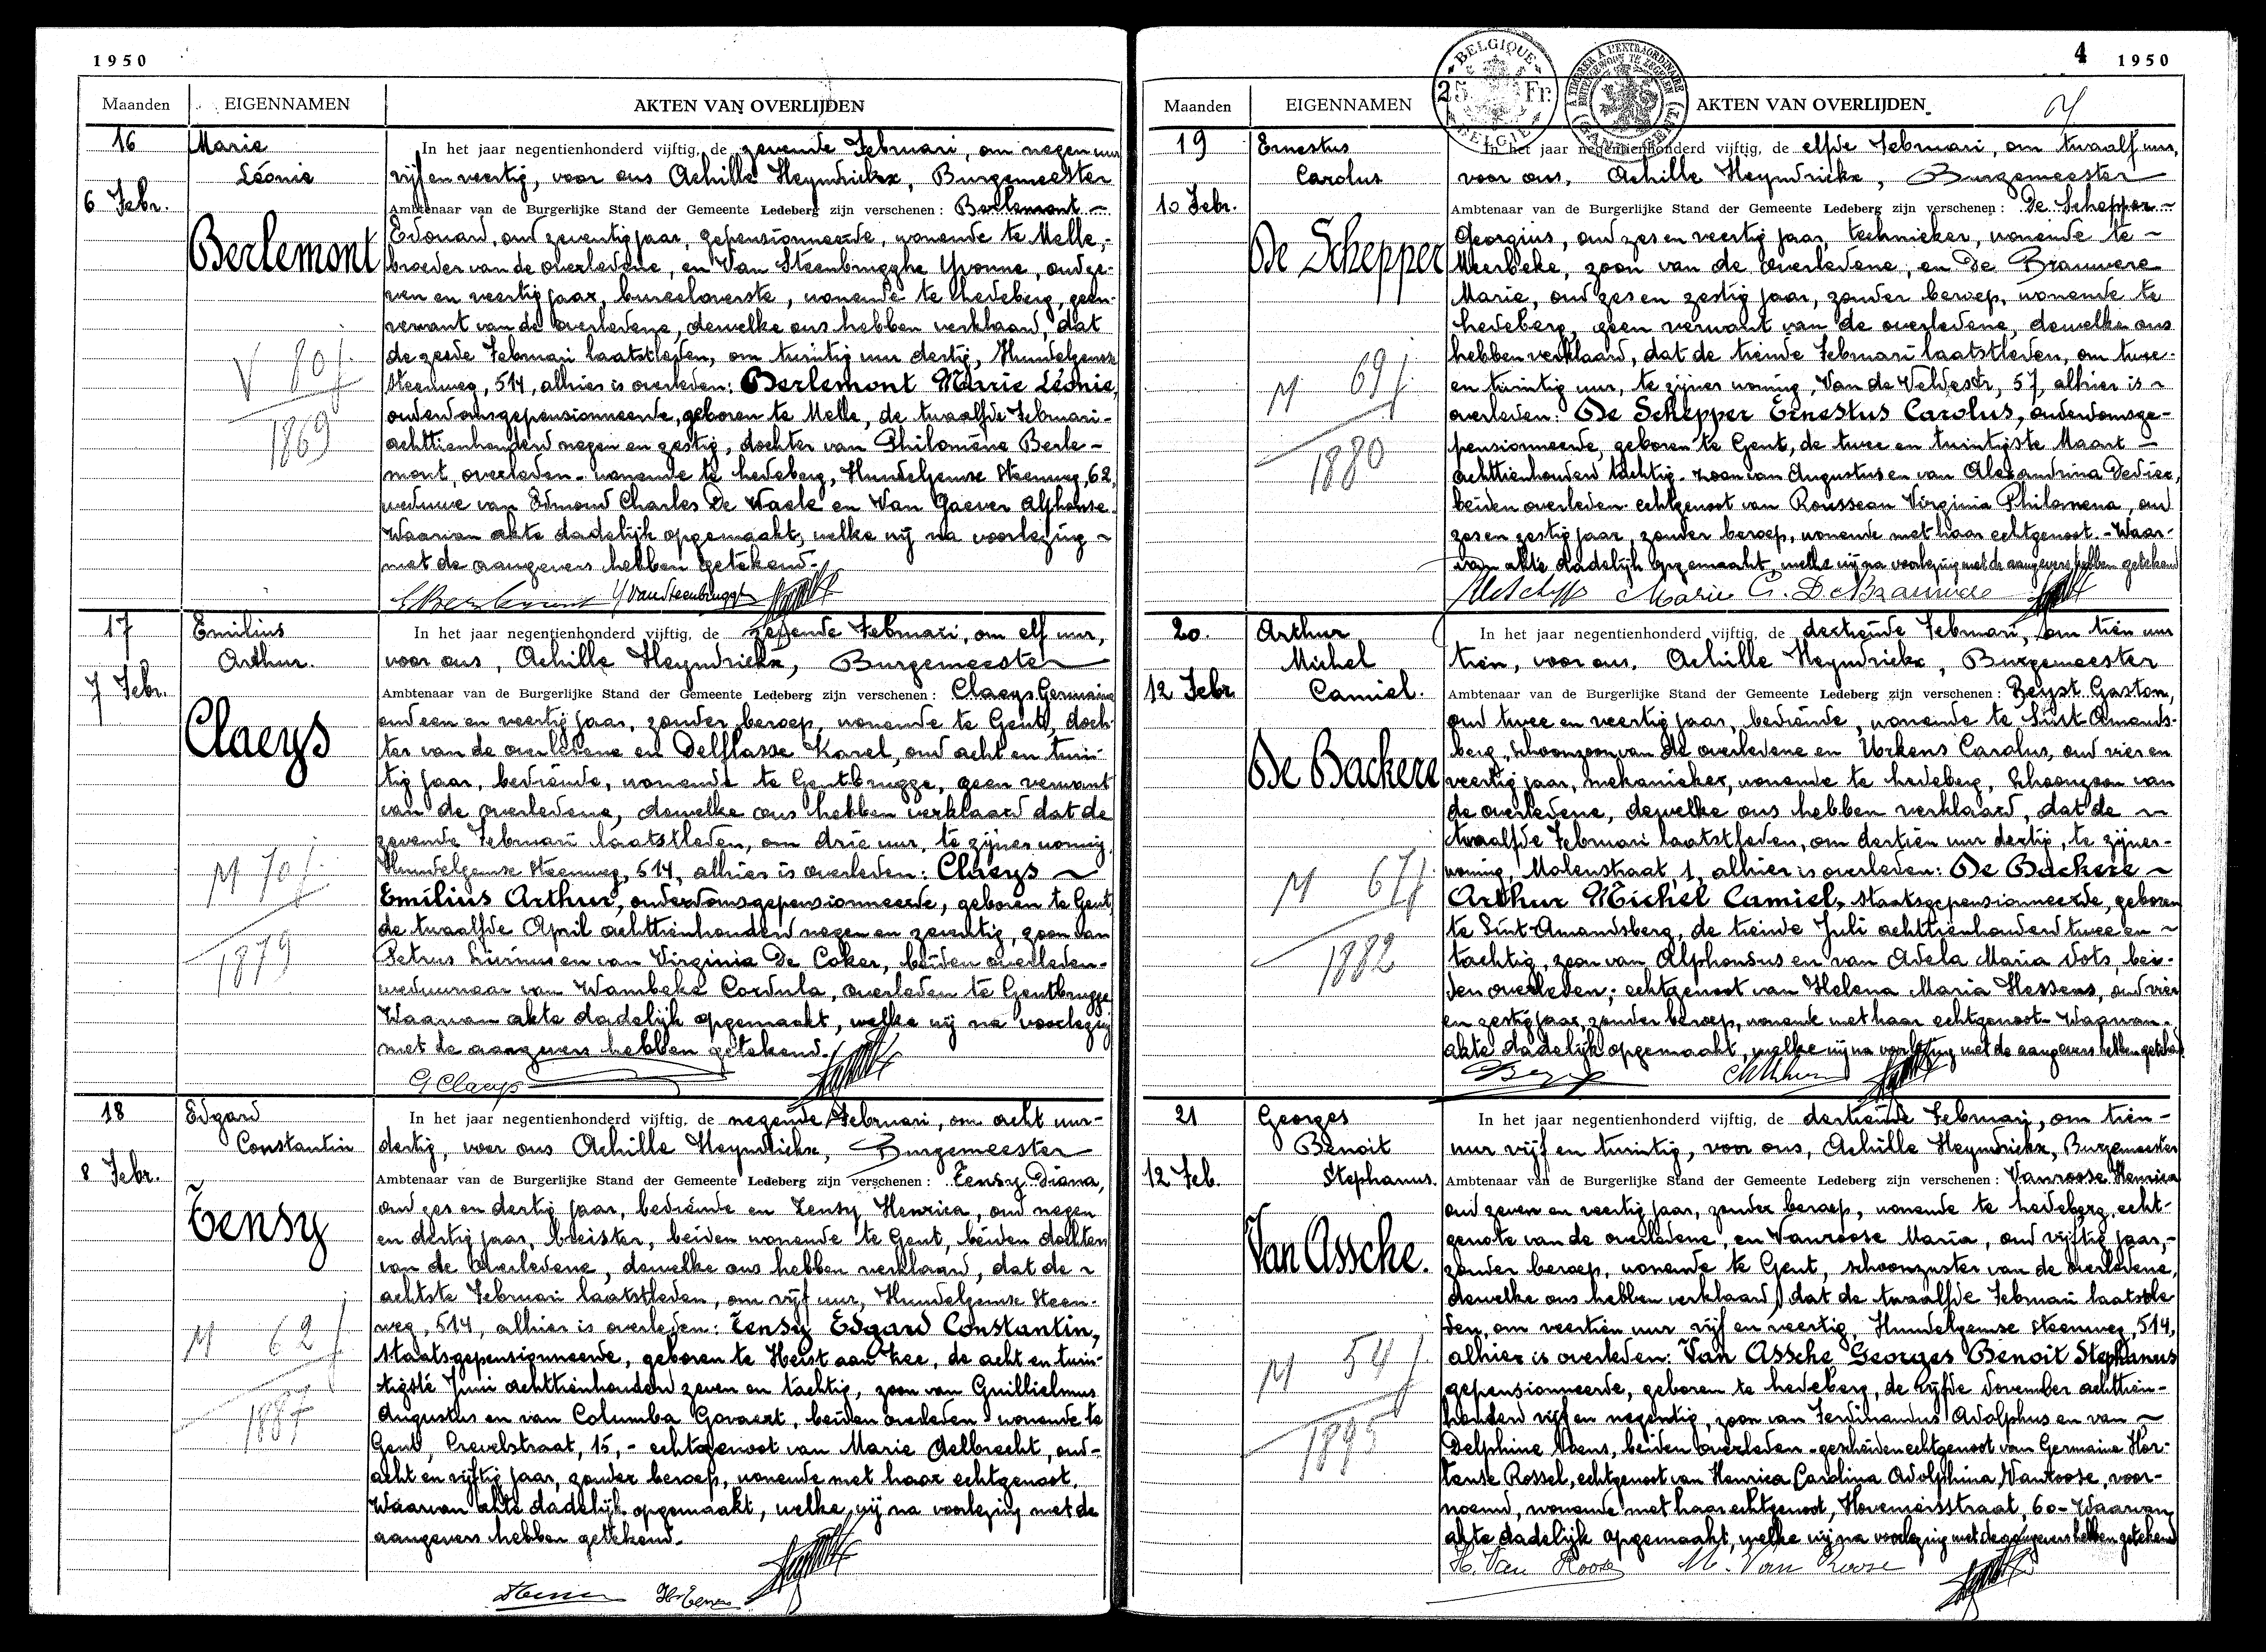 1950
Maanden EIGENNAMEN AKTEN VAN OVERLIJDEN
16
6 Febr.
Marie
Léonie
Berlemont
V 80 j
1869
In het jaar negentienhonderd vijftig, de zevende Februari, om negen uur
vijf en veertig, voor ons Achille Heyndrickx, Burgemeester
Ambtenaar van de Burgerlijke Stand der Gemeente Ledeberg zijn verschenen: Berlemont -
Edouard, oud zeventig jaar, gepensionneerde, wonende te Melle,-
broeder van de overledene, en Van Steenbrugghe Yvonne, oud ze-
ven en veertig jaar, bureeloverste, wonende te Ledeberg, geen
verwant van de overledene, dewelke ons hebben verklaard, dat
de zesde Februari laatstleden, om twintig uur dertig, Hundelgemse
Steenweg, 514, alhier is overleden: Berlemont Marie Léonie,
ouderdomsgepensionneerde, geboren te Melle, de twaalfde Februari-
achttienhonderd negen en zestig, dochter van Philomène Berle-
mont, overleden - wonende te Ledeberg, Hundelgemse Steenweg, 62,
weduwe van Edmond Charles De Waele en Van Gaever Alphonse.
Waarvan akte dadelijk opgemaakt, welke wij na voorlezing ~
met de aangevers hebben getekend.-
YVanSteenbrugghe
17
7 Febr.
Emilius
Arthur.
Claeys
M 70 j.
1879
In het jaar negentienhonderd vijftig, de zevende Februari, om elf uur,
voor ons, Achille Heyndrickx, Burgemeester
Ambtenaar van de Burgerlijke Stand der Gemeente Ledeberg zijn verschenen: Claeys Germaine
oud een en veertig jaar, zonder beroep, wonende te Gent, doch-
ter van de overledene en Delflasse Karel, oud acht en twin-
tig jaar, bediende, wonende te Gentbrugge, geen verwant
van de overledene, dewelke ons hebben verklaard dat de
zevende Februari laatstleden, om drie uur, te zijner woning
Hundelgemse Steenweg, 514, alhier is overleden: Claeys ~
Emilius Arthur, ouderdomsgepensionneerde, geboren te Gent,
de twaalfde April achttienhonderd negen en zeventig, zoon van
Petrus Livinus en van Virginia De Coker, beiden overleden-
weduwnaar van Wambeke Cordula, overleden te Gentbrugge
Waarvan akte dadelijk opgemaakt, welke wij na voorlezing
met de aangevers hebben getekend.
G Claeys
18
8 Febr.
Edgard
Constantin
Tensy
M 62 j
1887
In het jaar negentienhonderd vijftig, de negende Februari, om acht uur-
dertig, voor ons Achille Heyndrickx, Burgemeester
Ambtenaar van de Burgerlijke Stand der Gemeente Ledeberg zijn verschenen: Tensy Diana,
oud zes en dertig jaar, bediende en Tensy Henrica, oud negen
en dertig jaar, breister, beiden wonende te Gent, beiden dochters
van de overledene, dewelke ons hebben verklaard, dat de ~
achtste Februari laatstleden, om vijf uur, Hundelgemse Steen-
weg, 514, alhier is overleden: Tensy Edgard Constantin,
staatsgepensionneerde, geboren te Heist aan Zee, de acht en twin-
tigste Juni achttienhonderd zeven en tachtig, zoon van Guillielmus
Augustus en van Columba Govaert, beiden overleden wonende te
Gent, Crevelstraat, 15,- echtgenoot van Marie Aelbrecht, oud-
acht en vijftig jaar, zonder beroep, wonende met haar echtgenoot.
Waarvan akte dadelijk opgemaakt, welke wij na voorlezing met de
aangevers hebben getekend.-
BELGIQUE
25 Fr.
BELGIE
4 1950
Maanden EIGENNAMEN AKTEN VAN OVERLIJDEN
19
10 Febr.
Ernestus
Carolus
De Schepper
M 69 j
1880
In het jaar negentienhonderd vijftig, de elfde Februari, om twaalf uur,
voor ons, Achille Heyndrickx, Burgemeester
Ambtenaar van de Burgerlijke Stand der Gemeente Ledeberg zijn verschenen: De Schepper ~
Georgius, oud zes en veertig jaar, technieker, wonende te ~
Meerbeke, zoon van de overledene, en De Brauwere
Marie, oud zes en zestig jaar, zonder beroep, wonende te
Ledeberg, geen verwant van de overledene, dewelke ons
hebben verklaard, dat de tiende Februari laatstleden, om twee-
en twintig uur, te zijner woning, Van de Veldestr, 57, alhier is ~
overleden: De Schepper Ernestus Carolus, ouderdomsge-
pensionneerde, geboren te Gent, de twee en twintigste Maart -
achttienhonderd tachtig - zoon van Augustus en van Alexandrina
beiden overleden - echtgenoot van Rousseau Virginia Philomena, oud
zes en zestig jaar, zonder beroep, wonende met haar echtgenoot. - Waar-
van akte dadelijk opgemaakt, welke wij na voorlezing met de aangevers hebben getekend
Marie C. De Brauwere
20.
12 Febr
Arthur
Michel
Camiel.
De Backere
M 67 j.
1882
In het jaar negentienhonderd vijftig, de dertiende Februari, om tien uur
tien, voor ons, Achille Heyndrickx, Burgemeester
Ambtenaar van de Burgerlijke Stand der Gemeente Ledeberg zijn verschenen: Beyst Gaston,
oud twee en veertig jaar, bediende, wonende te Sint-Amands-
berg, schoonzoon van de overledene en Urkens Carolus, oud vier en
veertig jaar, mekanieker, wonende te Ledeberg, schoonzoon van
de overledene, dewelke ons hebben verklaard, dat de ~
twaalfde Februari laatstleden, om dertien uur dertig, te zijner-
woning, Molenstraat, 1, alhier is overleden: De Backere ~
Arthur Michel Camiel, staatsgepensionneerde, geboren
te Sint-Amandsberg, de tiende Juli achttienhonderd twee en ~
tachtig, zoon van Alphonsus en van Adela Maria Vots, bei-
den overleden; echtgenoot van Helena Maria Hessens, oud vier
en zestig jaar, zonder beroep, wonende met haar echtgenoot - Waarvan.
akte dadelijk opgemaakt, welke wij na voorlezing met de aangevers hebben getekend
21
12 Feb.
Georges
Benoit
Stephanus.
Van Assche.
M 54 j
1895
In het jaar negentienhonderd vijftig, de dertiende Februari, om tien -
uur vijf en twintig, voor ons, Achille Heyndrickx, Burgemeester
Ambtenaar van de Burgerlijke Stand der Gemeente Ledeberg zijn verschenen: Vanroose Henrica
oud zeven en veertig jaar, zonder beroep, wonende te Ledeberg, echt-
genote van de overledene, en Vanroose Maria, oud vijftig jaar,-
zonder beroep, wonende te Gent, schoonzuster van de overledene,
dewelke ons hebben verklaard, dat de twaalfde Februari laatstle
den, om veertien uur vijf en veertig, Hundelgemse Steenweg, 514,
alhier is overleden: Van Assche Georges Benoit Stephanus
gepensionneerde, geboren te Ledeberg, de vijfde November achttien-
honderd vijf en negentig, zoon van Ferdinandus Adolphus en van ~
Delphine beiden overleden - gescheiden echtgenoot van Germaine Hor-
tense Rossel, echtgenoot van Henrica Carolina Adolphina Vanroose, voor-
noemd, wonende met haar echtgenoot, Hovenierstraat, 60 - Waarvan
akte dadelijk opgemaakt, welke wij na voorlezing met de aangevers hebben getekend
H. Van Roose M. Van Roose